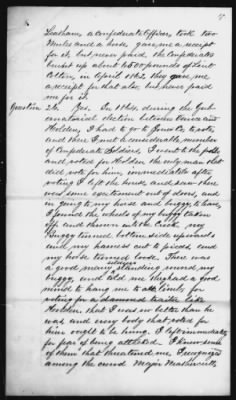 Graham, a Confederate Officer, took two
Mules and a horse gave me a receipt
for it, but never paid. The Confederates
burnt up about 4500 pounds of Lint
Cotton, in April 1865 they gave me
a receipt for that also, but have never paid
me for it.
Question 26. Yes. In 1864, during the Gub-
ernatorial election between Vance and
Holden, I had to go to vote
and there I met a considerable number
of Confederate Soldiers. I went to the polls
and voted for Holden the only man that
did vote for him, immediately after
voting I left the house, and saw there
was some excitement out of doors, and
in going to my horse and buggy, to leave,
I found the wheels of my buggy taken
off and thrown into the Creek, my
Buggy turned bottom side upwards
and my harness cut to pieces, and
my horse turned loose. There was
a good many soldiers standing around my
buggy, and told me they had a good
mind to hang me to a limb, for
voting for a damned traitor like
Holden, that I was no better than he
was, and every body that voted for
him ought to be hung. I left immediately
for fear of being attacked. I knew some
of them that threatened me, I recognized
among the crowd Major